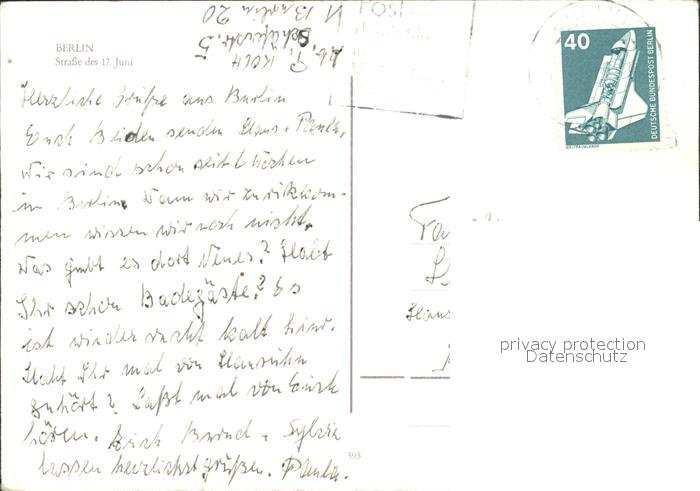 BERLIN
Straße des 17. Juni
Abs. P. KOCH
Schäferstr. 5
1 Berlin 20
POST
40
DEUTSCHE BUNDESPOST BERLIN
WELTRAUMLABOR
Herzliche Grüße aus Berlin
Euch Beiden senden Hans + Paula.
Wir sind schon seit 6 Wochen
in Berlin. Wann wir zurückkom-
men wissen wir noch nicht.
Was giebt es dort Neues? Habt
Ihr schon Badegäste? Es
ist wieder recht kalt hier.
Habt Ihr mal von
gehört? Laßt mal von Euch
hören. Auch Bernd + Sylvia
lassen herzlichst grüßen. Paula.
393
Fa
Haus
privacy protection
Datenschutz